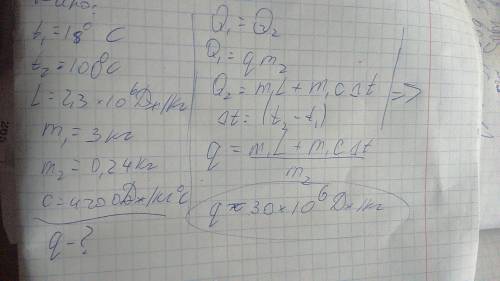 t₁=18° C
t₂=100°C
L=2,3×10⁶Дж/кг
m₁=3кг
m₂=0,24кг
C=4200Дж/кг°C
q-?
Q₁=Q₂
Q₁=qm₂
Q₂=m₁L+m₁CΔt =>
Δt=(t₂-t₁)
q=(m₁L+m₁CΔt)/m₂
q≈30×10⁶Дж/кг